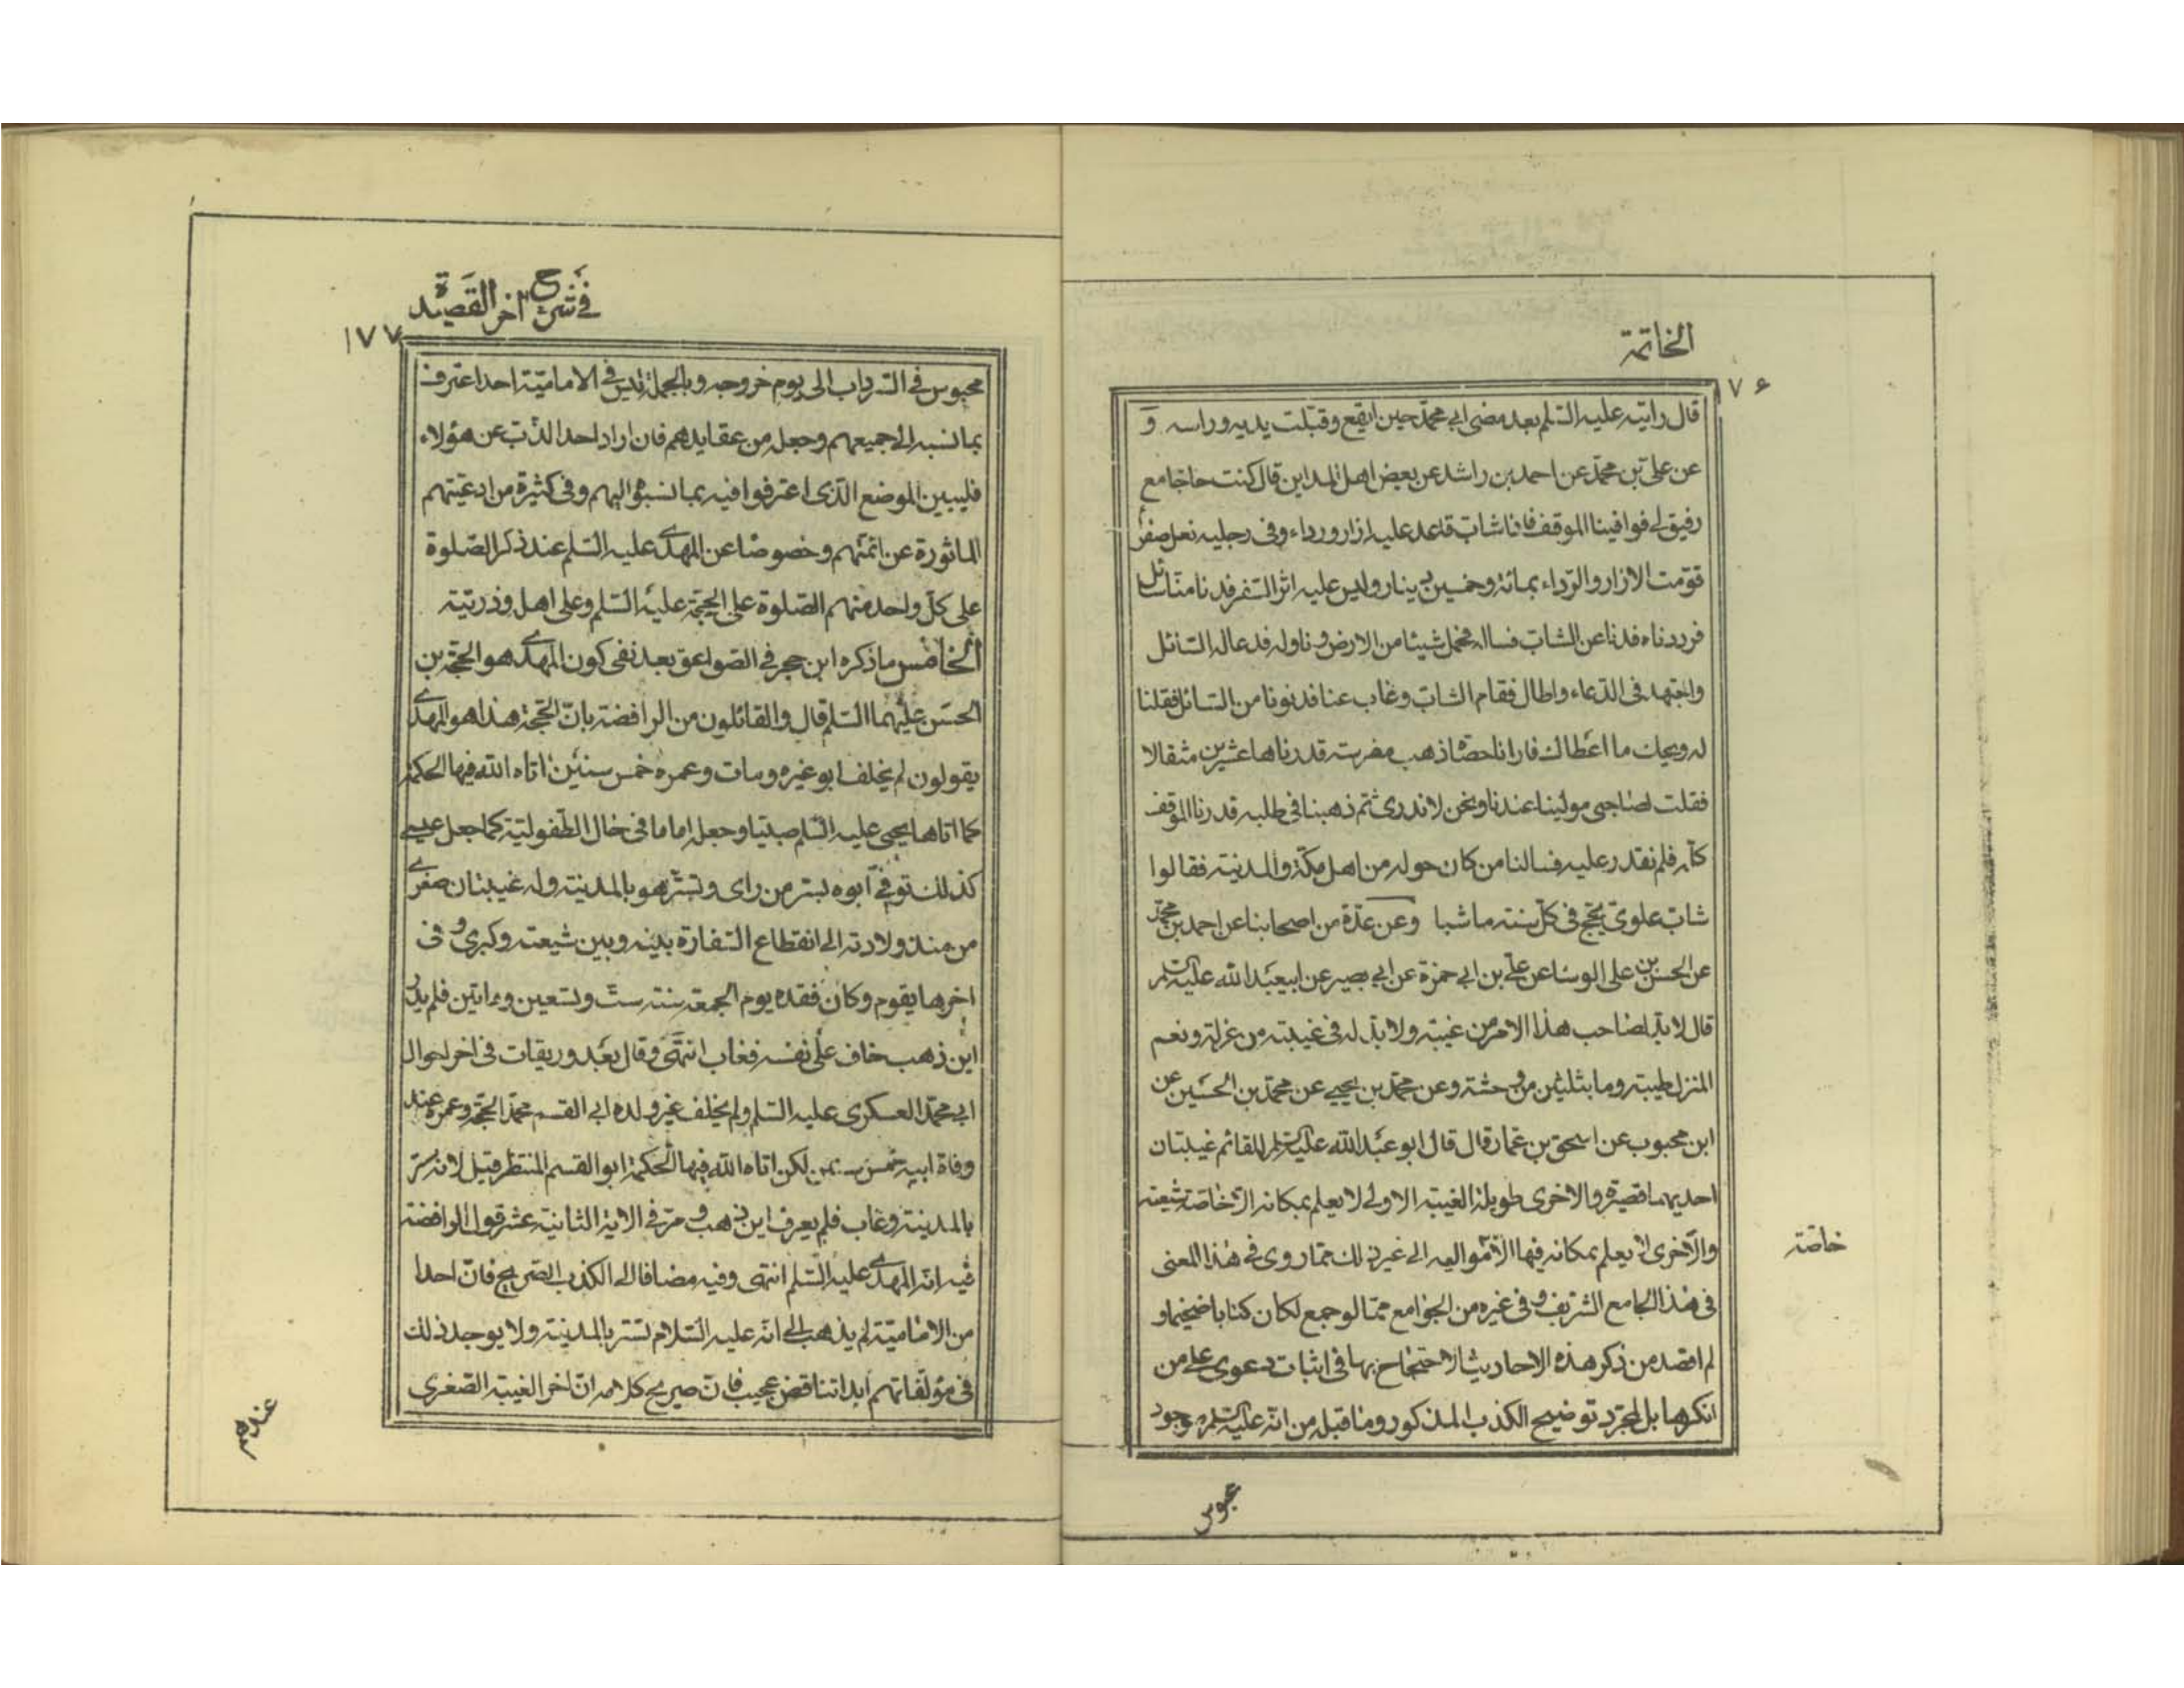 الخاتمة
١٧۶
قال رايته عليه السّلم بعد مضى ابى محمّد حين ايفع وقبّلت يديه وراسه وَ
عن علىّ بن محمّد عن احمد بن راشد عن بعض اهل المداين قال كنت حاجا مع
رفيق لى فوافينا الموقف فاذا شابّ قاعد عليه ازار ورداء وفى رجليه نعل صفر
قوّمت الازار والرّداء بمائة وخمسين دينار وليس عليه اثر السّفر فدنا منّا سائل
فرددناه فدنا عن الشابّ فساله فحمل شيئا من الارض وناوله فدعا له السّائل
واجتهد فى الدّعاء واطال فقام الشابّ وغاب عنا فدنونا من السّائل فقلنا
له ويحك ما اعطاك فارانا حصاة ذهب مضرسه قدرناها عشرين مثقالا
فقلت لصاحبى مولينا عندنا ونحن لا ندرى ثمّ ذهبنا فى طلبه فدرنا الموقف
كلّه فلم نقدر عليه فسالنا من كان حوله من اهل مكّة والمدينة فقالوا
شابّ علوىّ يحجّ فى كلّ سنة ماشيا وعن عدّة من اصحابنا عن احمد بن محمّد
عن الحسن بن على الوشا عن على بن ابى حمزة عن ابى بصير عن ابيعبد الله عليه السّلم
قال لا بدّ لصاحب هذا الامر من غيبة ولا بدّ له فى غيبته من عزلة ونعم
المنزل طيبة وما بثلثين من وحشة وعن محمّد بن يحيى عن محمّد بن الحسين عن
ابن محبوب عن اسحق بن عمار قال قال ابو عبد الله عليه السّلم للقائم غيبتان
احديهما قصيرة والاخرى طويلة الغيبة الاولى لا يعلم بمكانه الّا خاصّة شيعته
والاخرى لا يعلم بمكانه فيها الّا مواليه الى غير ذلك ممّا روى فى هذا المعنى
خاصّة
فى هذا الجامع الشريف وفى غيره من الجوامع ممّا لو جمع لكان كتابا ضخيما و
لم اقصد من ذكر هذه الاحاديث الاحتجاج بها فى اثبات دعوى على من
انكرها بل لمجرّد توضيح الكذب المذكور وما قبله من انّه عليه السّلم موجود
محبوس
فى شرح آخر القصيدة
١٧٧
محبوس فى السّرداب الى يوم خروجه وبالجملة ليس فى الاماميّة احد اعترف
بما نسبه الى جميعهم وجعله من عقايدهم فان اراد احد الذّبّ عن هؤلاء
فليبين الموضع الّذى اعترفوا فيه بما نسبوا اليهم وفى كثيرة من ادعيتهم
الماثورة عن ائمّتهم وخصوصا عن المهدى عليه السّلم عند ذكر الصّلوة
على كلّ واحد منهم الصّلوة على الحجّة عليه السّلم وعلى اهله وذريّته
الخامس ما ذكره ابن حجر فى الصّواعق بعد نفى كون المهدى هو الحجّة بن
الحسن عليهما السّلم قال والقائلون من الرافضة بانّ الحجّة هذا هو المهدى
يقولون لم يخلف ابوه غيره ومات وعمره خمس سنين اتاه الله فيها الحكمة
كما اتاها يحيى عليه السّلم صبيّا وجعله اماما فى حال الطّفوليّة كما جعل عيسى
كذلك توفّى ابوه بسرّ من راى وتستّر هو بالمدينة وله غيبتان صغرى
من منذ ولادته الى انقطاع السّفارة بينه وبين شيعته وكبرى وفى
اخرها يقوم وكان فقده يوم الجمعة سنة ستّ وتسعين ومايتين فلم يدر
اين ذهب خاف على نفسه فغاب انتهى وقال بعد وريقات فى اخر احوال
ابى محمّد العسكرى عليه السّلم ولم يخلف غير ولده ابى القسم محمّد الحجّة وعمره عند
وفاة ابيه خمس سنين لكن اتاه الله فيها الحكمة ابو القسم المنتظر قيل لانه ستر
بالمدينة وغاب فلم يعرف اين ذهب ومرّ فى الاية الثانية عشر قول الرافضة
فيه انّه المهدى عليه السّلم انتهى وفيه مضافا الى الكذب الصّريح فانّ احدا
من الاماميّة لم يذهب الى انّه عليه السّلام تستّر بالمدينة ولا يوجد ذلك
فى مؤلّفاتهم ابدا تناقض عجيب فانّ صريح كلامه انّ اخر الغيبة الصّغرى
عندهم